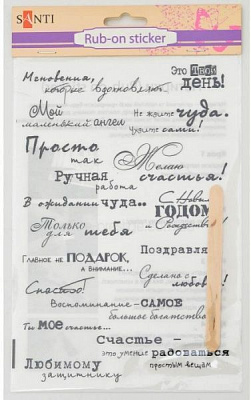 SANTI
Rub-on sticker
Это Твой
день!
Мгновения,
которые вдохновляют...
Мой
маленький ангел
Не ждите чуда.
Чудите сами!
Просто
так
Желаю
счастья!
Ручная
работа
В ожидании чуда...
С Новым
ГОДОМ
и Рождеством!
Только
для тебя
Поздравля
Главное не ПОДАРОК,
а внимание...
Сделано с
любовью!
Спасибо!
Воспоминание - САМОЕ
большое богатство
Ты мое счастье...
Счастье -
это умение радоваться
простым вещам
Любимому
защитнику